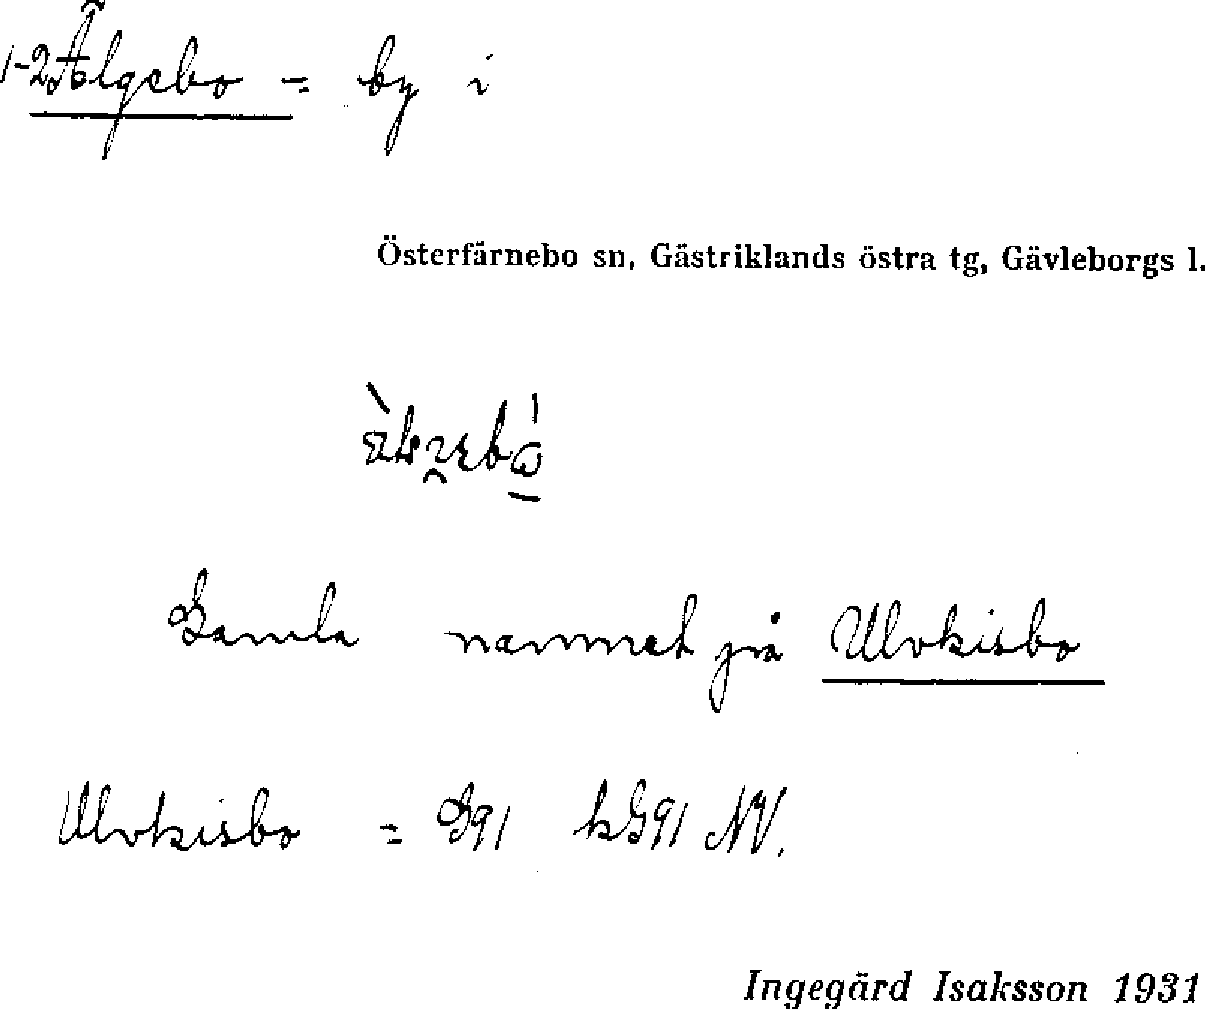 1-2 Älgebo = by i
Österfärnebo sn, Gästriklands östra tg, Gävleborgs l.
Gamla namnet på Ulvkisbo
Ulvkisbo = G91 kG91 NV.
Ingegärd Isaksson 1931